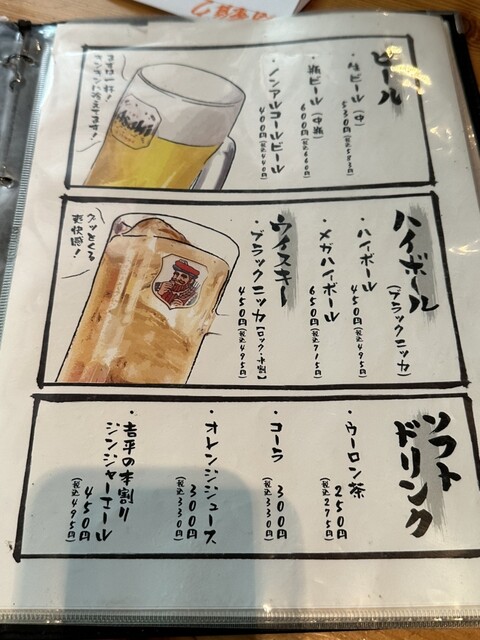 ビール
・生ビール(中)
530円(税込583円)
・瓶ビール(中瓶)
600円(税込660円)
・ノンアルコールビール
400円(税込440円)
まずは一杯!
キンキンに冷えてます!
ハイボール
(ブラックニッカ)
・ハイボール
450円(税込495円)
・メガハイボール
650円(税込715円)
ウイスキー
・ブラックニッカ【ロック・水割】
450円(税込495円)
グッとくる
爽快感!
ソフト
ドリンク
・ウーロン茶
250円
(税込275円)
・コーラ
300円
(税込330円)
・オレンジジュース
300円
(税込330円)
・吉平の本割り
ジンジャーエール
450円
(税込495円)